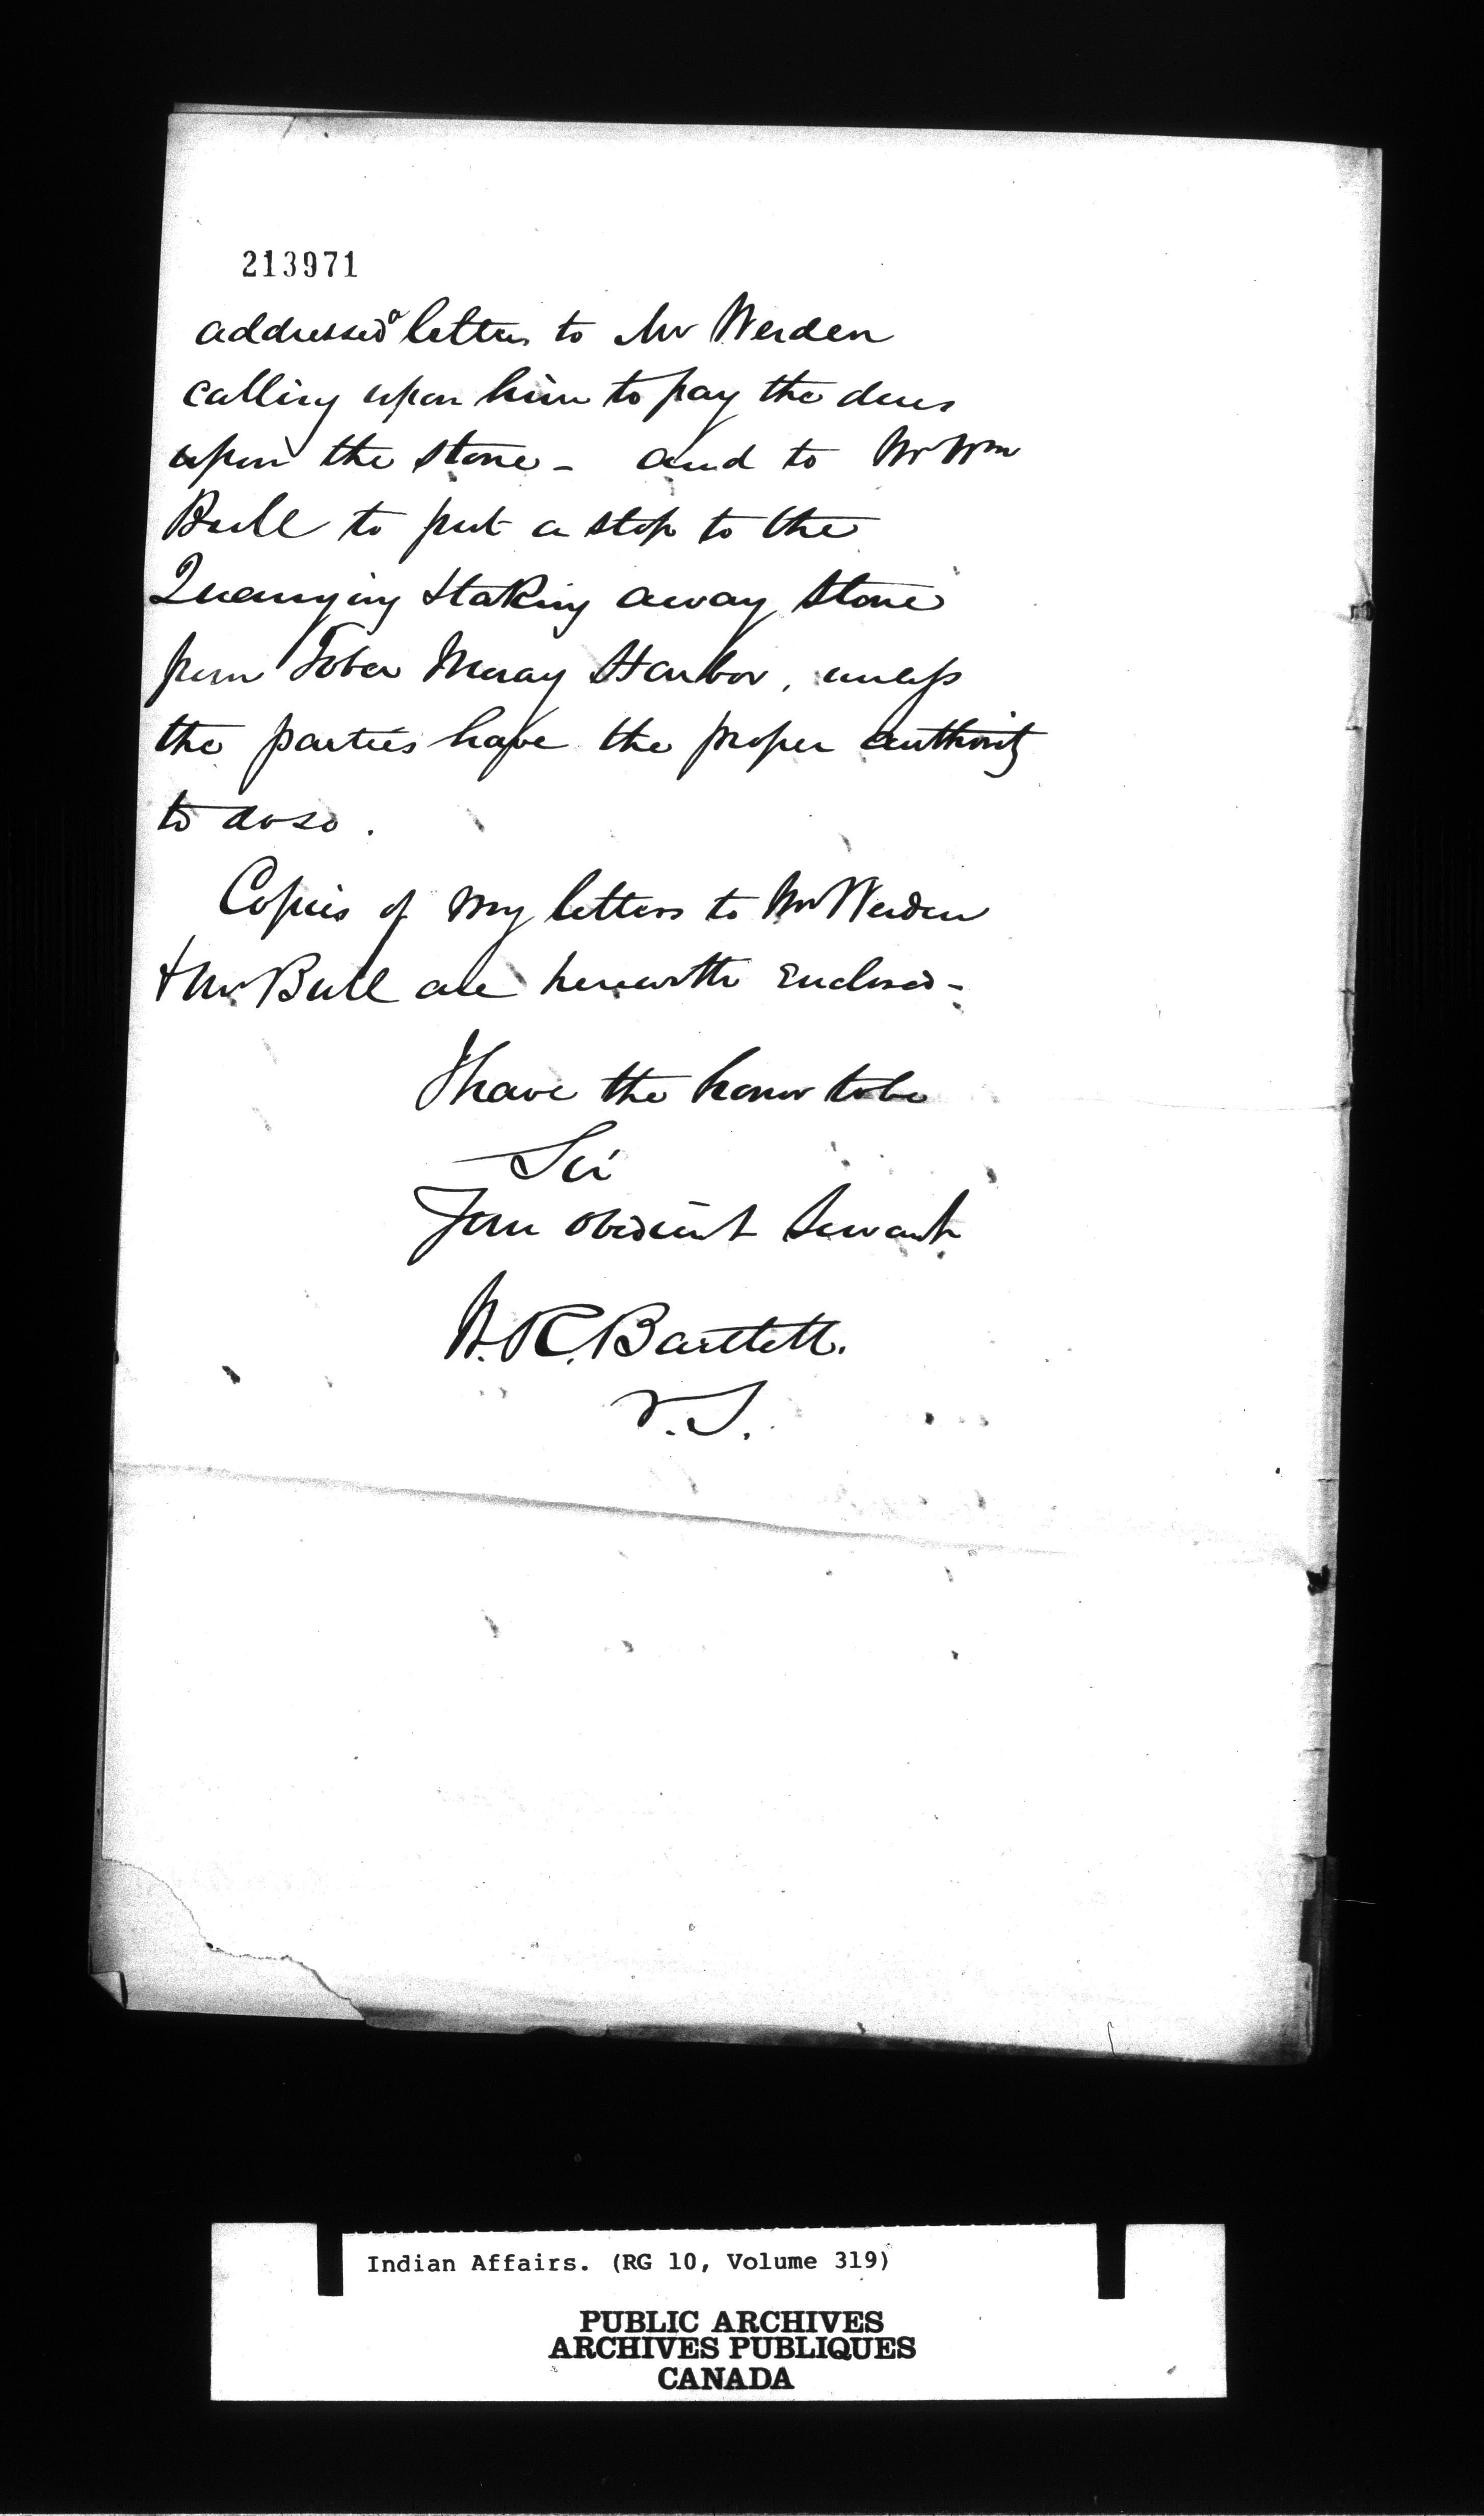 213971
addressed a letter to Mr Werden
calling upon him to pay the dues
upon the stone - and to Mr Wm
Bull to put a stop to the
Quarrying & taking away stone
from Tober Moray Harbor, unless
the parties have the proper authority
to do so.
Copies of my letters to Mr Werden
& Mr Bull are herewith enclosed -
I have the honor to be
Sir
Your obedient Servant
W. R. Bartlett.
V. S.
Indian Affairs. (RG 10, Volume 319)
PUBLIC ARCHIVES
ARCHIVES PUBLIQUES
CANADA